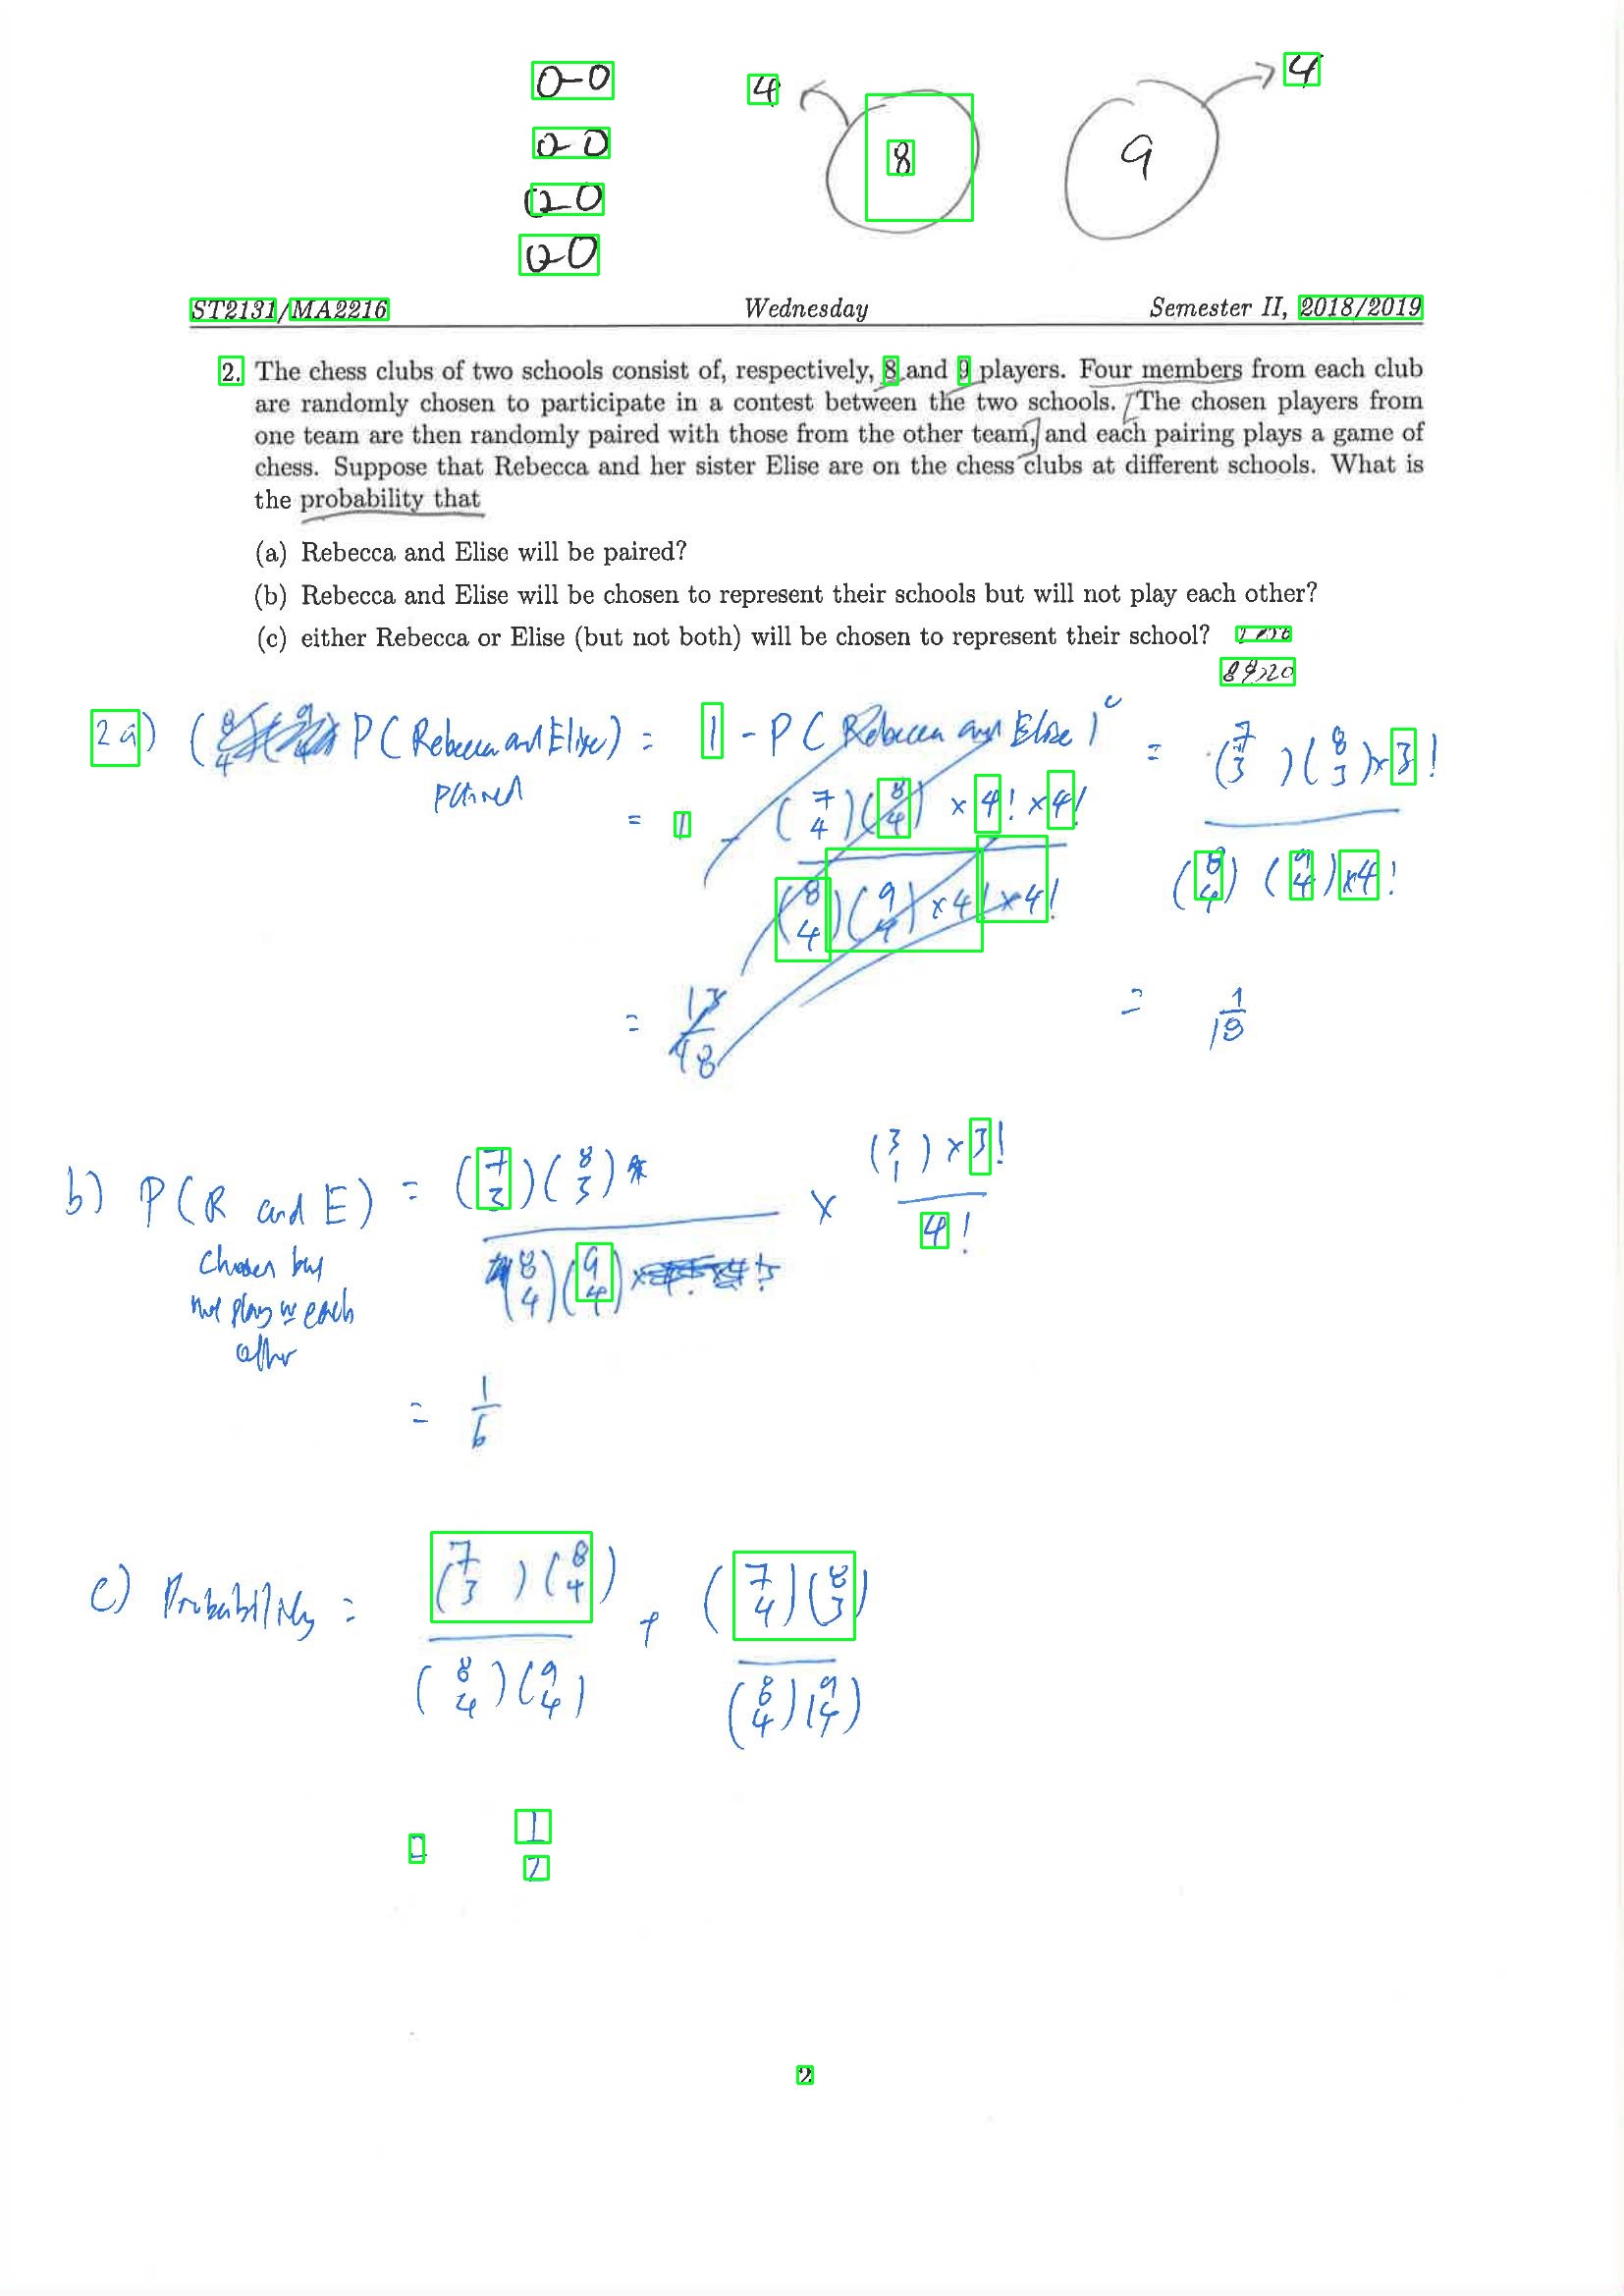 0-0
4
4
0-0
8
9
0-0
0-0
ST2131/MA2216 Wednesday Semester II, 2018/2019
2. The chess clubs of two schools consist of, respectively, 8 and 9 players. Four members from each club
are randomly chosen to participate in a contest between the two schools. The chosen players from
one team are then randomly paired with those from the other team, and each pairing plays a game of
chess. Suppose that Rebecca and her sister Elise are on the chess clubs at different schools. What is
the probability that
(a) Rebecca and Elise will be paired?
(b) Rebecca and Elise will be chosen to represent their schools but will not play each other?
(c) either Rebecca or Elise (but not both) will be chosen to represent their school?
2a) P(Rebecca and Elise) = 1 - P(Rebecca and Elise)^c = (7 3)(8 3)×3!
paired
= 1 - (7 4)(8 4) × 4! × 4!
(8 4)(9 4)×4!×4!
(8 4)(9 4)×4!
= 1/18
b) P(R and E) = (7 3)(8 3) × (3 1)×3!
(8 4)(9 4) 4!
chosen but
not play w each
other
= 1/6
c) Probability = (7 3)(8 4) + (7 4)(8 3)
(8 4)(9 4) (8 4)(9 4)
= 1/2
2